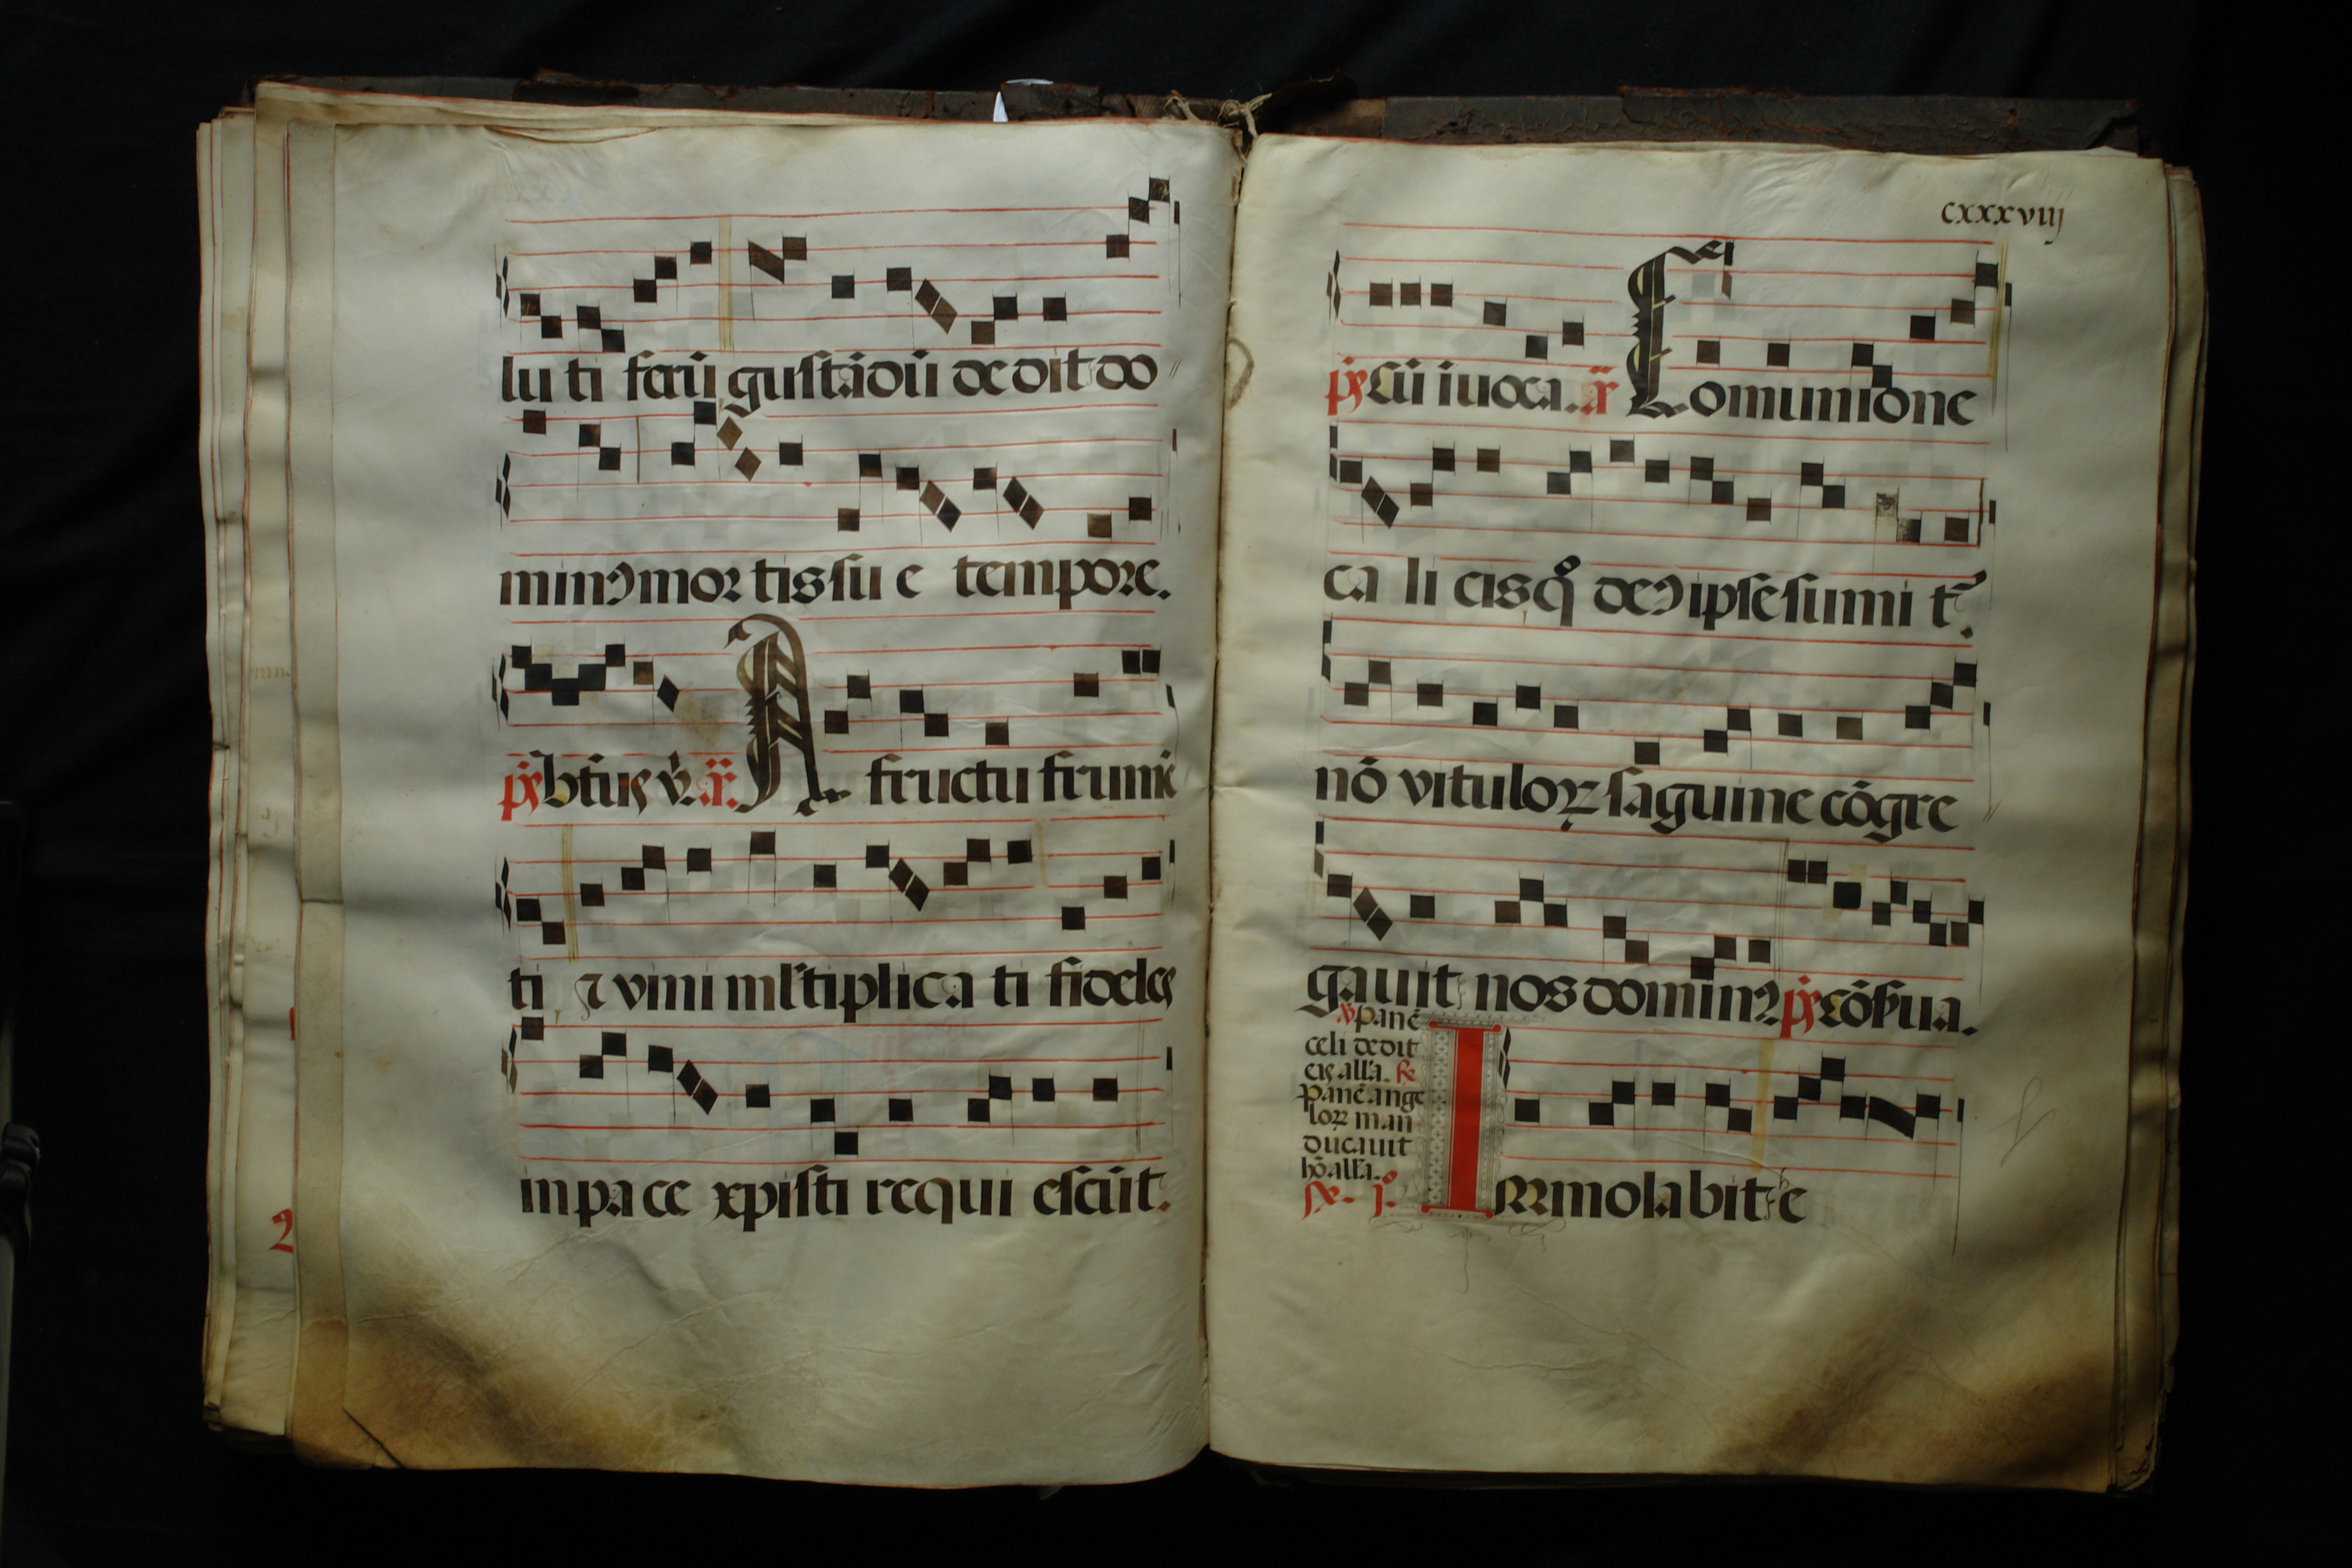 lu ti ferũ gustãdũ dedit do
minꝰ mortis su e tempore.
p̃s btũs v̾. a͂. A fructu frumẽ
ti ⁊ vini ml̾tiplica ti fideles
in pa ce xp̃isti requi escũt.
cxxxviij
p̃s Cũ ĩuoca. a͂ Comunione
ca li cis qͦ deꝰ ipse sumi t᷑.
nõ vituloꝝ sãguine cõgre
gauit nos dominꝰ p̃s cõf̃ua.
℣ panẽ
celi dedit
eis all̃a. ℟
panẽ ange
loꝝ man
ducauit
hõ all̃a.
℟. jº
Immolabit he